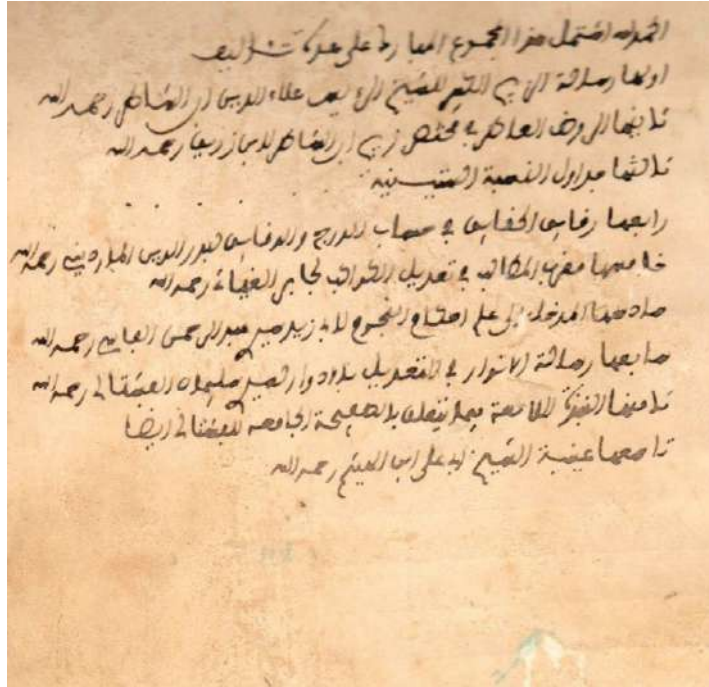 الحمد لله اشتمل هذا المجموع المبارك على عدة تئاليف
اولها رسالة الزيج للشيخ الرئيس علاء الدين ابن الشاطر رحمه الله
ثانيها الروض العاطر في مختصر زيج ابن الشاطر لابن زريق رحمه الله
ثالثها جداول النسبة الستينية
رابعها رقايق الحقايق في حساب الدرج والدقايق لبدر الدين المارديني رحمه الله
خامسها مقرب المطالب في تعديل الكواكب لجابر الغياثي رحمه الله
سادسها المدخل الى علم احكام النجوم لابي زيد سيد عبد الرحمن الفاسي رحمه الله
سابعها رسالة الانوار في التعديل بالادوار لسيد سليمان الفشتالي رحمه الله
ثامنها الجامعة فيما يتعلق بالصفيحة الجامعه للفشتالي ايضا
تاسعها الشيخ ابي علي ابن الهيثم رحمه الله